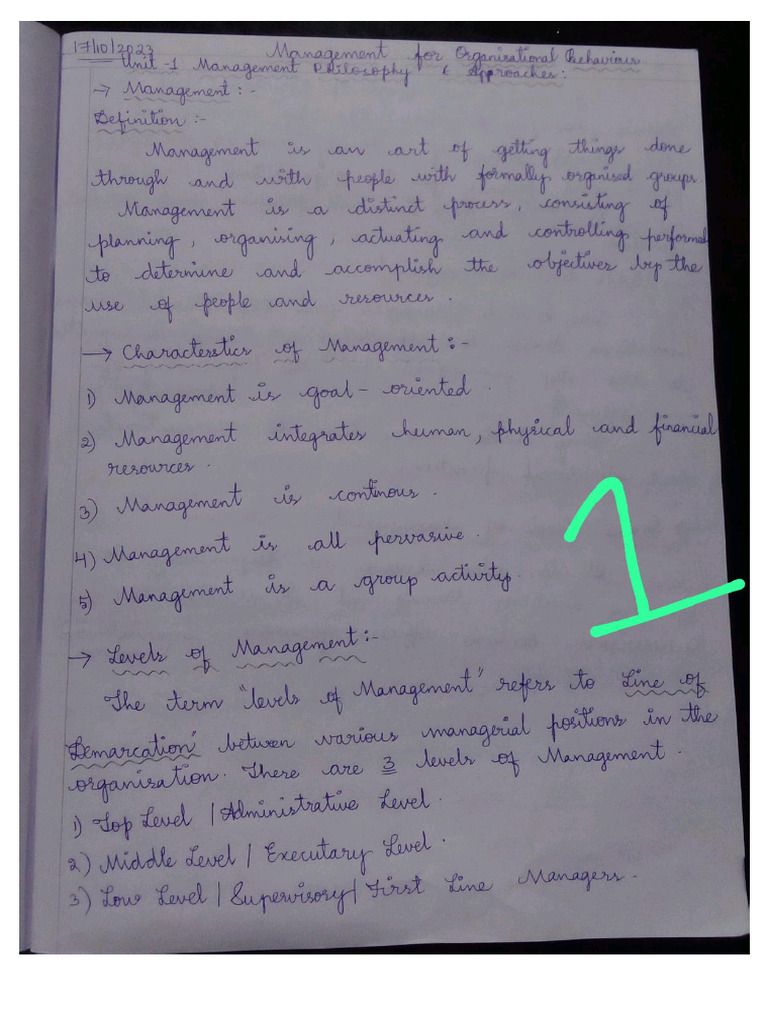 17/10/2023 Management for Organisational Behaviour
Unit -1 Management Philosophy & Approaches:
→ Management :-
Definition :-
Management is an art of getting things done
through and with people with formally organised groups
Management is a distinct process, consisting of
planning, organising, actuating and controlling performed
to determine and accomplish the objectives by the
use of people and resources.
→ Characterstics of Management :-
1) Management is goal - oriented.
2) Management integrates human, physical and financial
resources.
3) Management is continous.
4) Management is all pervasive.
5) Management is a group activity.
1
→ Levels of Management :-
The term "levels of Management" refers to Line of
Demarcation" between various managerial positions in the
organisation. There are 3 levels of Management.
1) Top Level | Administrative Level.
2) Middle Level | Executary Level.
3) Low Level | Supervisory | First Line Managers.